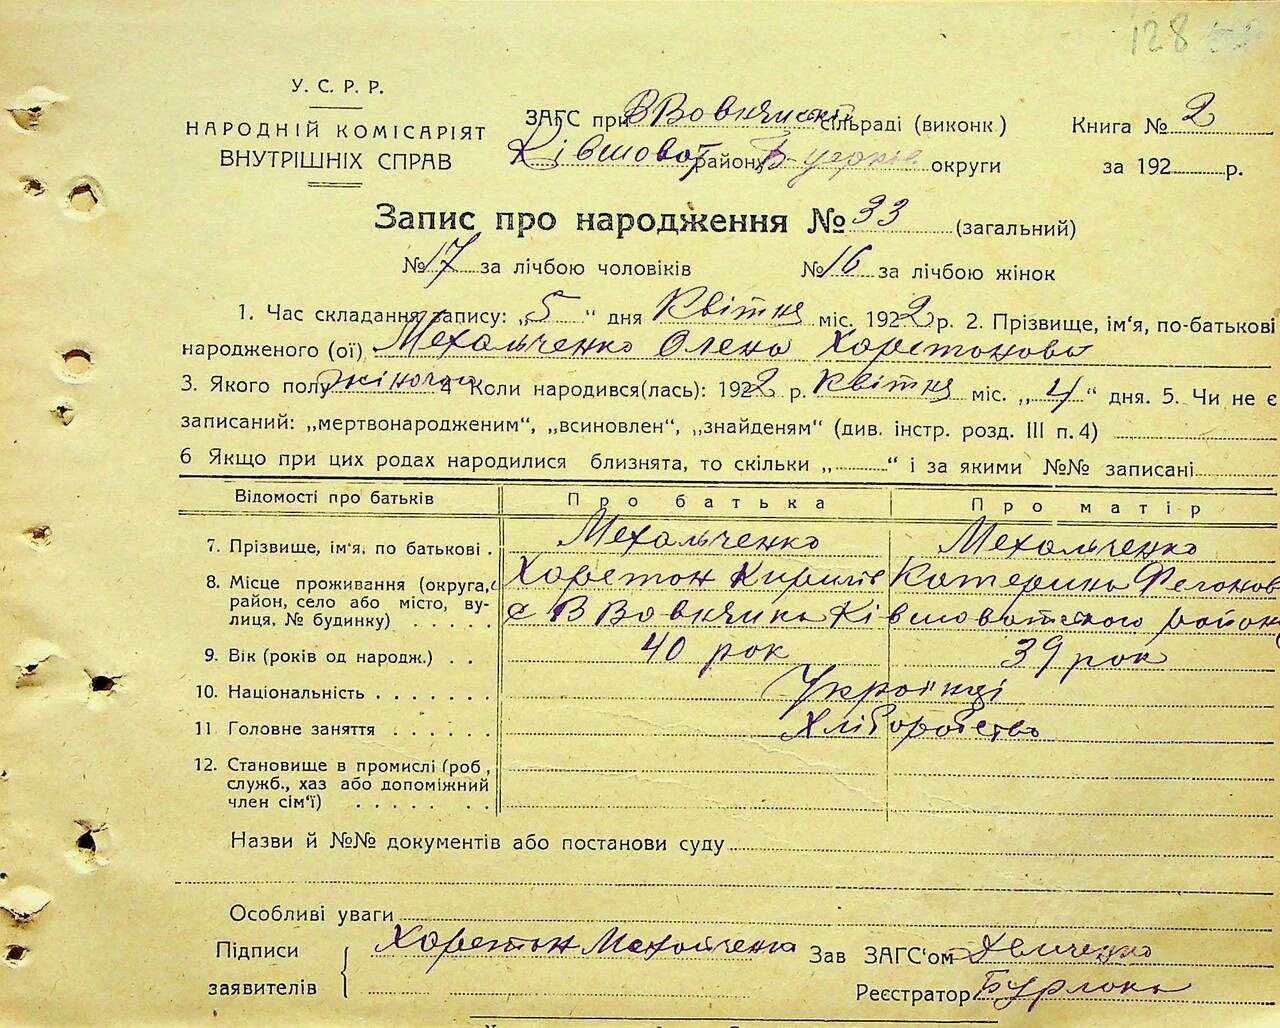 128
У. С. Р. Р.
НАРОДНІЙ КОМІСАРІЯТ
ВНУТРІШНІХ СПРАВ
ЗАГС при сільраді (виконк.)
району округи
Книга № 2
за 192 р.
Запис про народження № 33 (загальний)
№ 17 за лічбою чоловіків № 16 за лічбою жінок
1. Час складання запису: „5“ дня Квітня міс. 1922 р. 2. Прізвище, ім'я, по-батькові
народженого (ої) Мехальченко Олена Харетонова
3. Якого полу жіночог 4 Коли народився(лась): 1922 р. Квітня міс. „4“ дня. 5. Чи не є
записаний: „мертвонародженим“, „всиновлен“, „знайденям“ (див. інстр. розд. III п. 4)
6 Якщо при цих родах народилися близнята, то скільки „ “ і за якими №№ записані
Відомості про батьків Про батька Про матір
7. Прізвище, ім'я, по батькові . Мехальченко Мехальченко
Харетон Кирилів Катерина
8. Місце проживання (округа,
район, село або місто, ву-
лиця, № будинку) . . . . . с ВВовнянка Ківшоватского район
9. Вік (років од народж.) . . 40 рок 39 рок
10. Національність . . . . . . . Українці
11 Головне заняття . . . . . . Хліборобство
12. Становище в промислі (роб,
служб., хаз або допоміжний
член сім'ї) . . . . . .
Назви й №№ документів або постанови суду
Особливі уваги
Підписи
заявителів
Харетон Мехальченко
Зав ЗАГС'ом Демченко
Реєстратор Бурлака